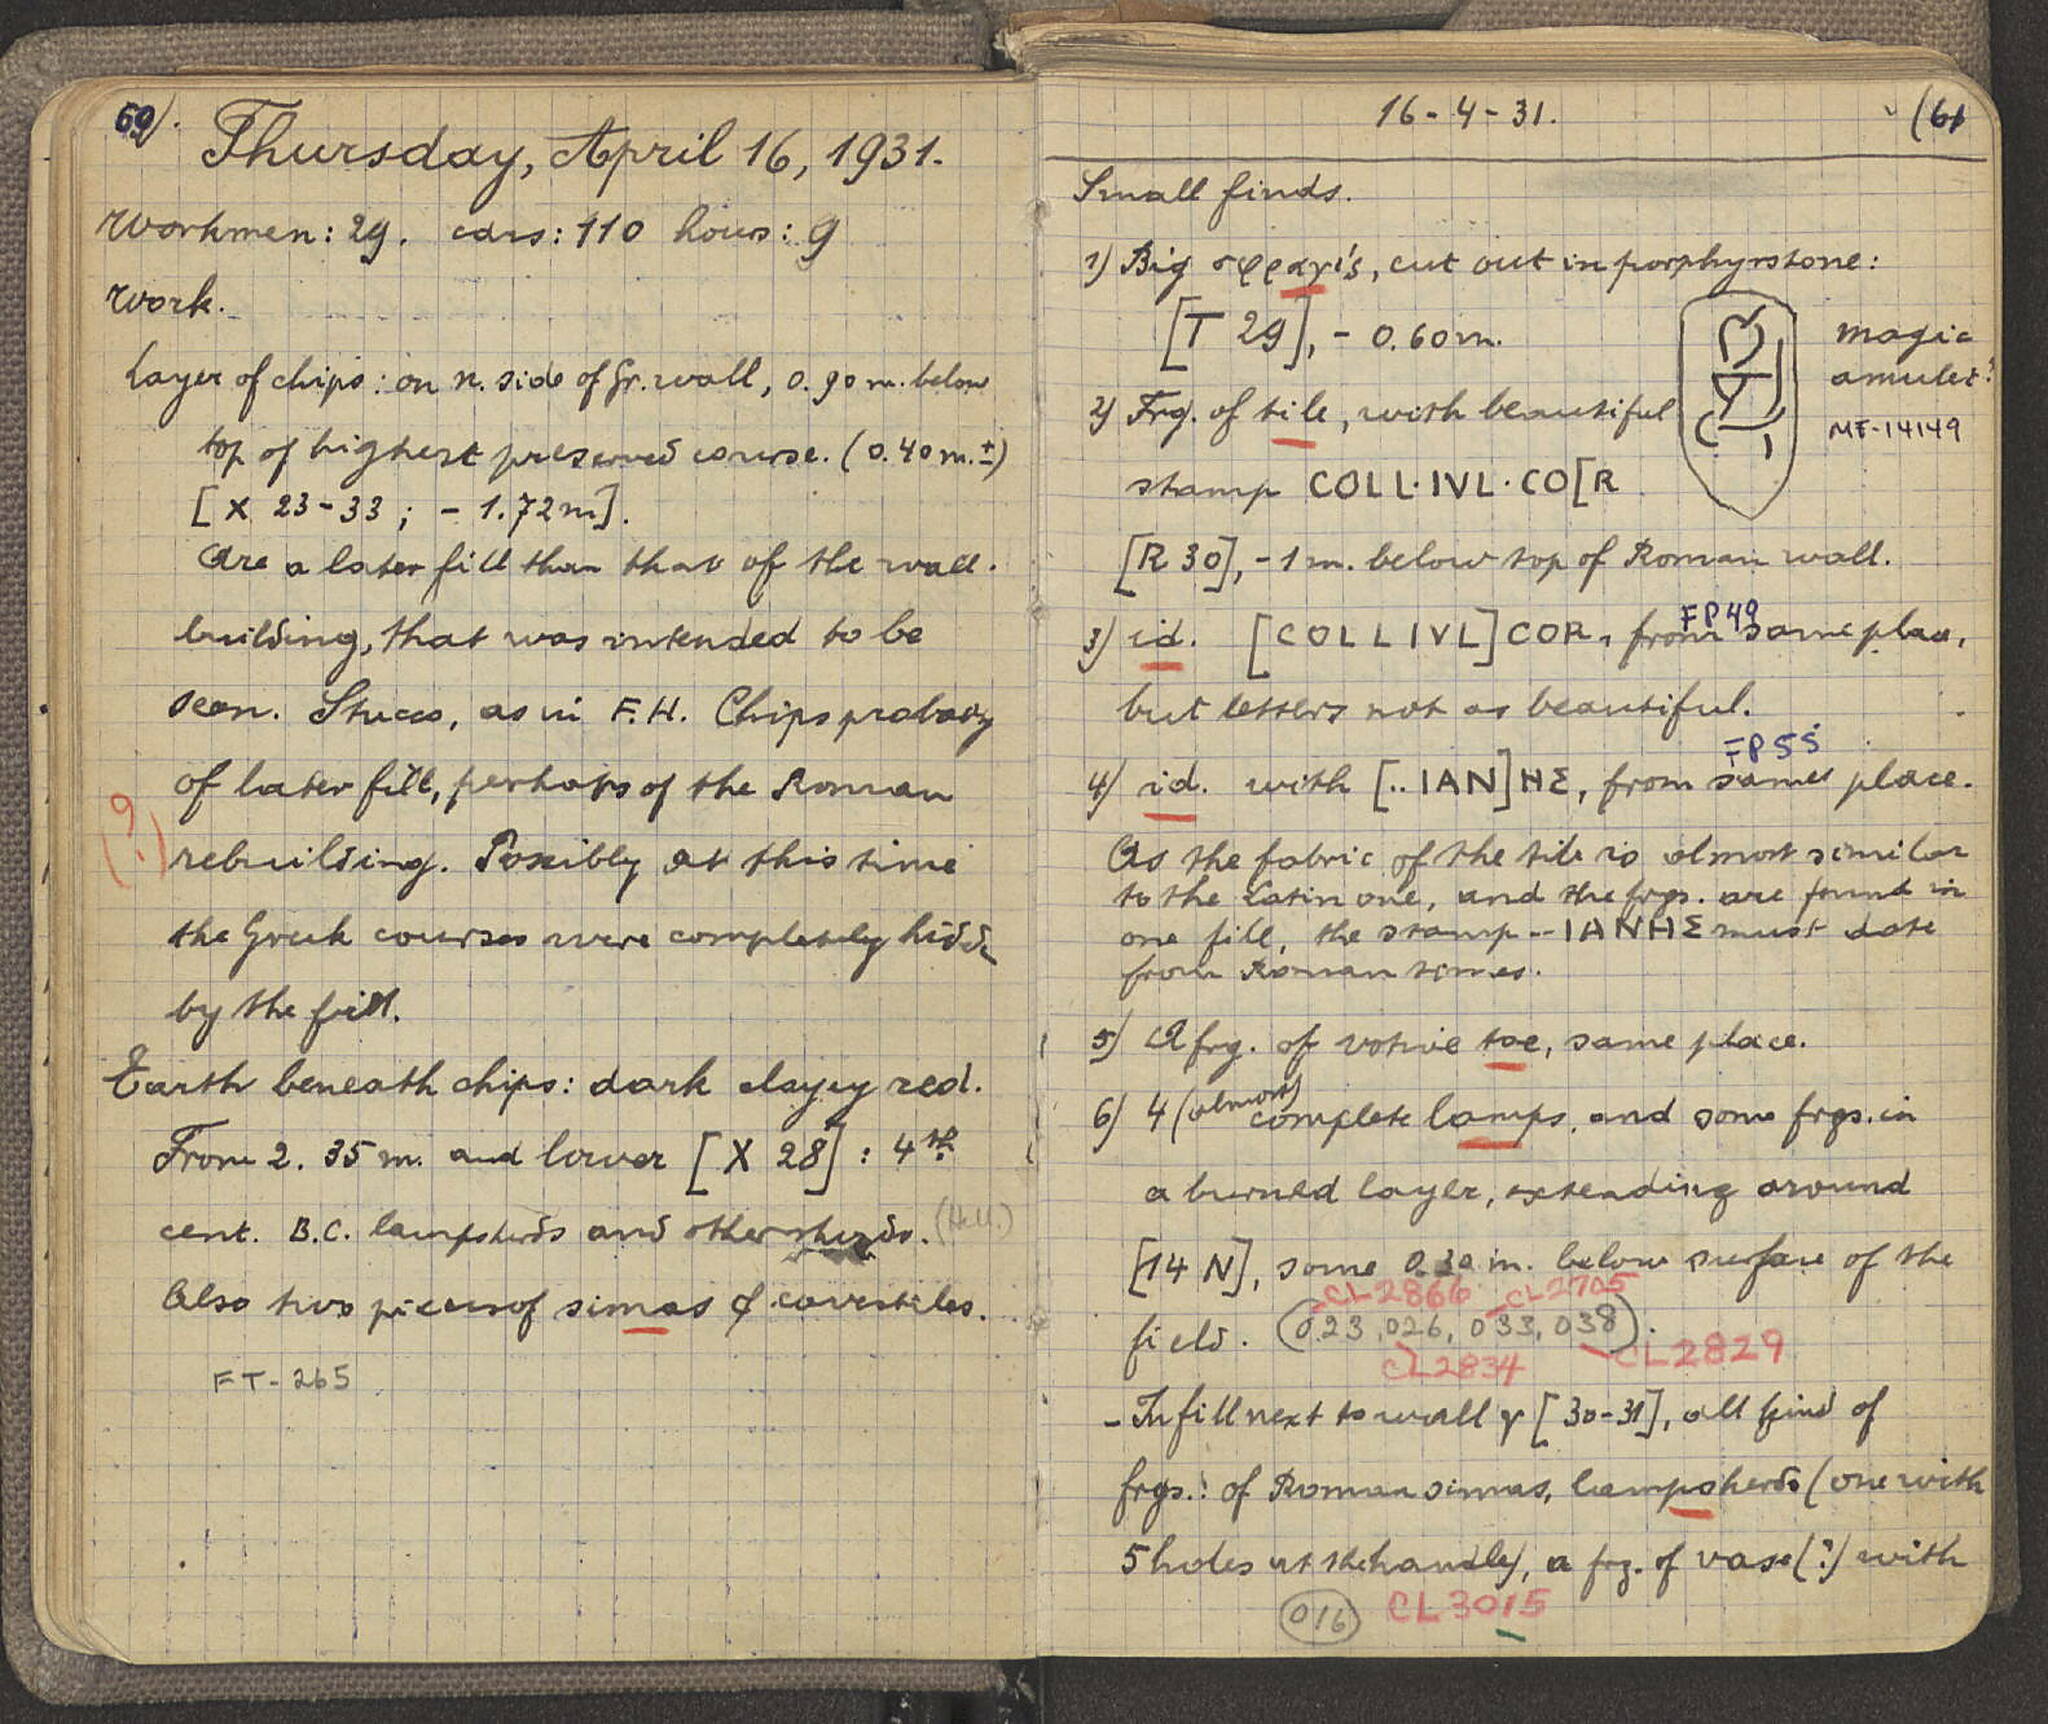 60).
Thursday, April 16, 1931.
Workmen: 29. cars: 110 hours: 9
Work.
Layer of chips: on n. side of Gr. wall, 0.90 m. below
top of highest preserved course. (0.40 m. ±)
[X 23-33; - 1.72 m].
Are a later fill than that of the wall.
building, that was intended to be
seen. Stucco, as in F.H. Chips probably
of later fill, perhaps of the Roman
(?)
rebuilding. Possibly at this time
the Greek courses were completely hidde
by the fill.
Earth beneath chips: dark clayey red.
From 2.35 m. and lower [X 28]: 4th.
cent. B.C. lampsherds and other sherds. (Hell.)
Also two pieces of simas & covertiles.
FT-265
16-4-31.
(61
Small finds.
1) Big σφραγίς, cut out in porphyrstone:
[T 29], - 0.60 m.
magic
amulet?
MF-14149
2) Frg. of tile, with beautiful
stamp COLL·IVL·CO[R
[R 30], -1 m. below top of Roman wall.
FP49
3) id. [COLLIVL]COR, from same place,
but letters not as beautiful.
FP55
4) id. with [..IAN]HΣ, from same place.
As the fabric of the tile is almost similar
to the Latin one, and the frgs. are found in
one fill, the stamp --IANHΣ must date
from Roman times.
5) A frg. of votive toe, same place.
6) 4 (almost) complete lamps, and some frgs. in
a burned layer, extending around
[14 N], some 0.30 m. below surface of the
CL2866 CL2705
field. (023, 026, 033, 038).
CL2834 CL2829
- In fill next to wall γ [30-31], all kind of
frgs.: of Roman simas, lampsherds (one with
5 holes at the handle), a frg. of vase (?) with
016 CL3015